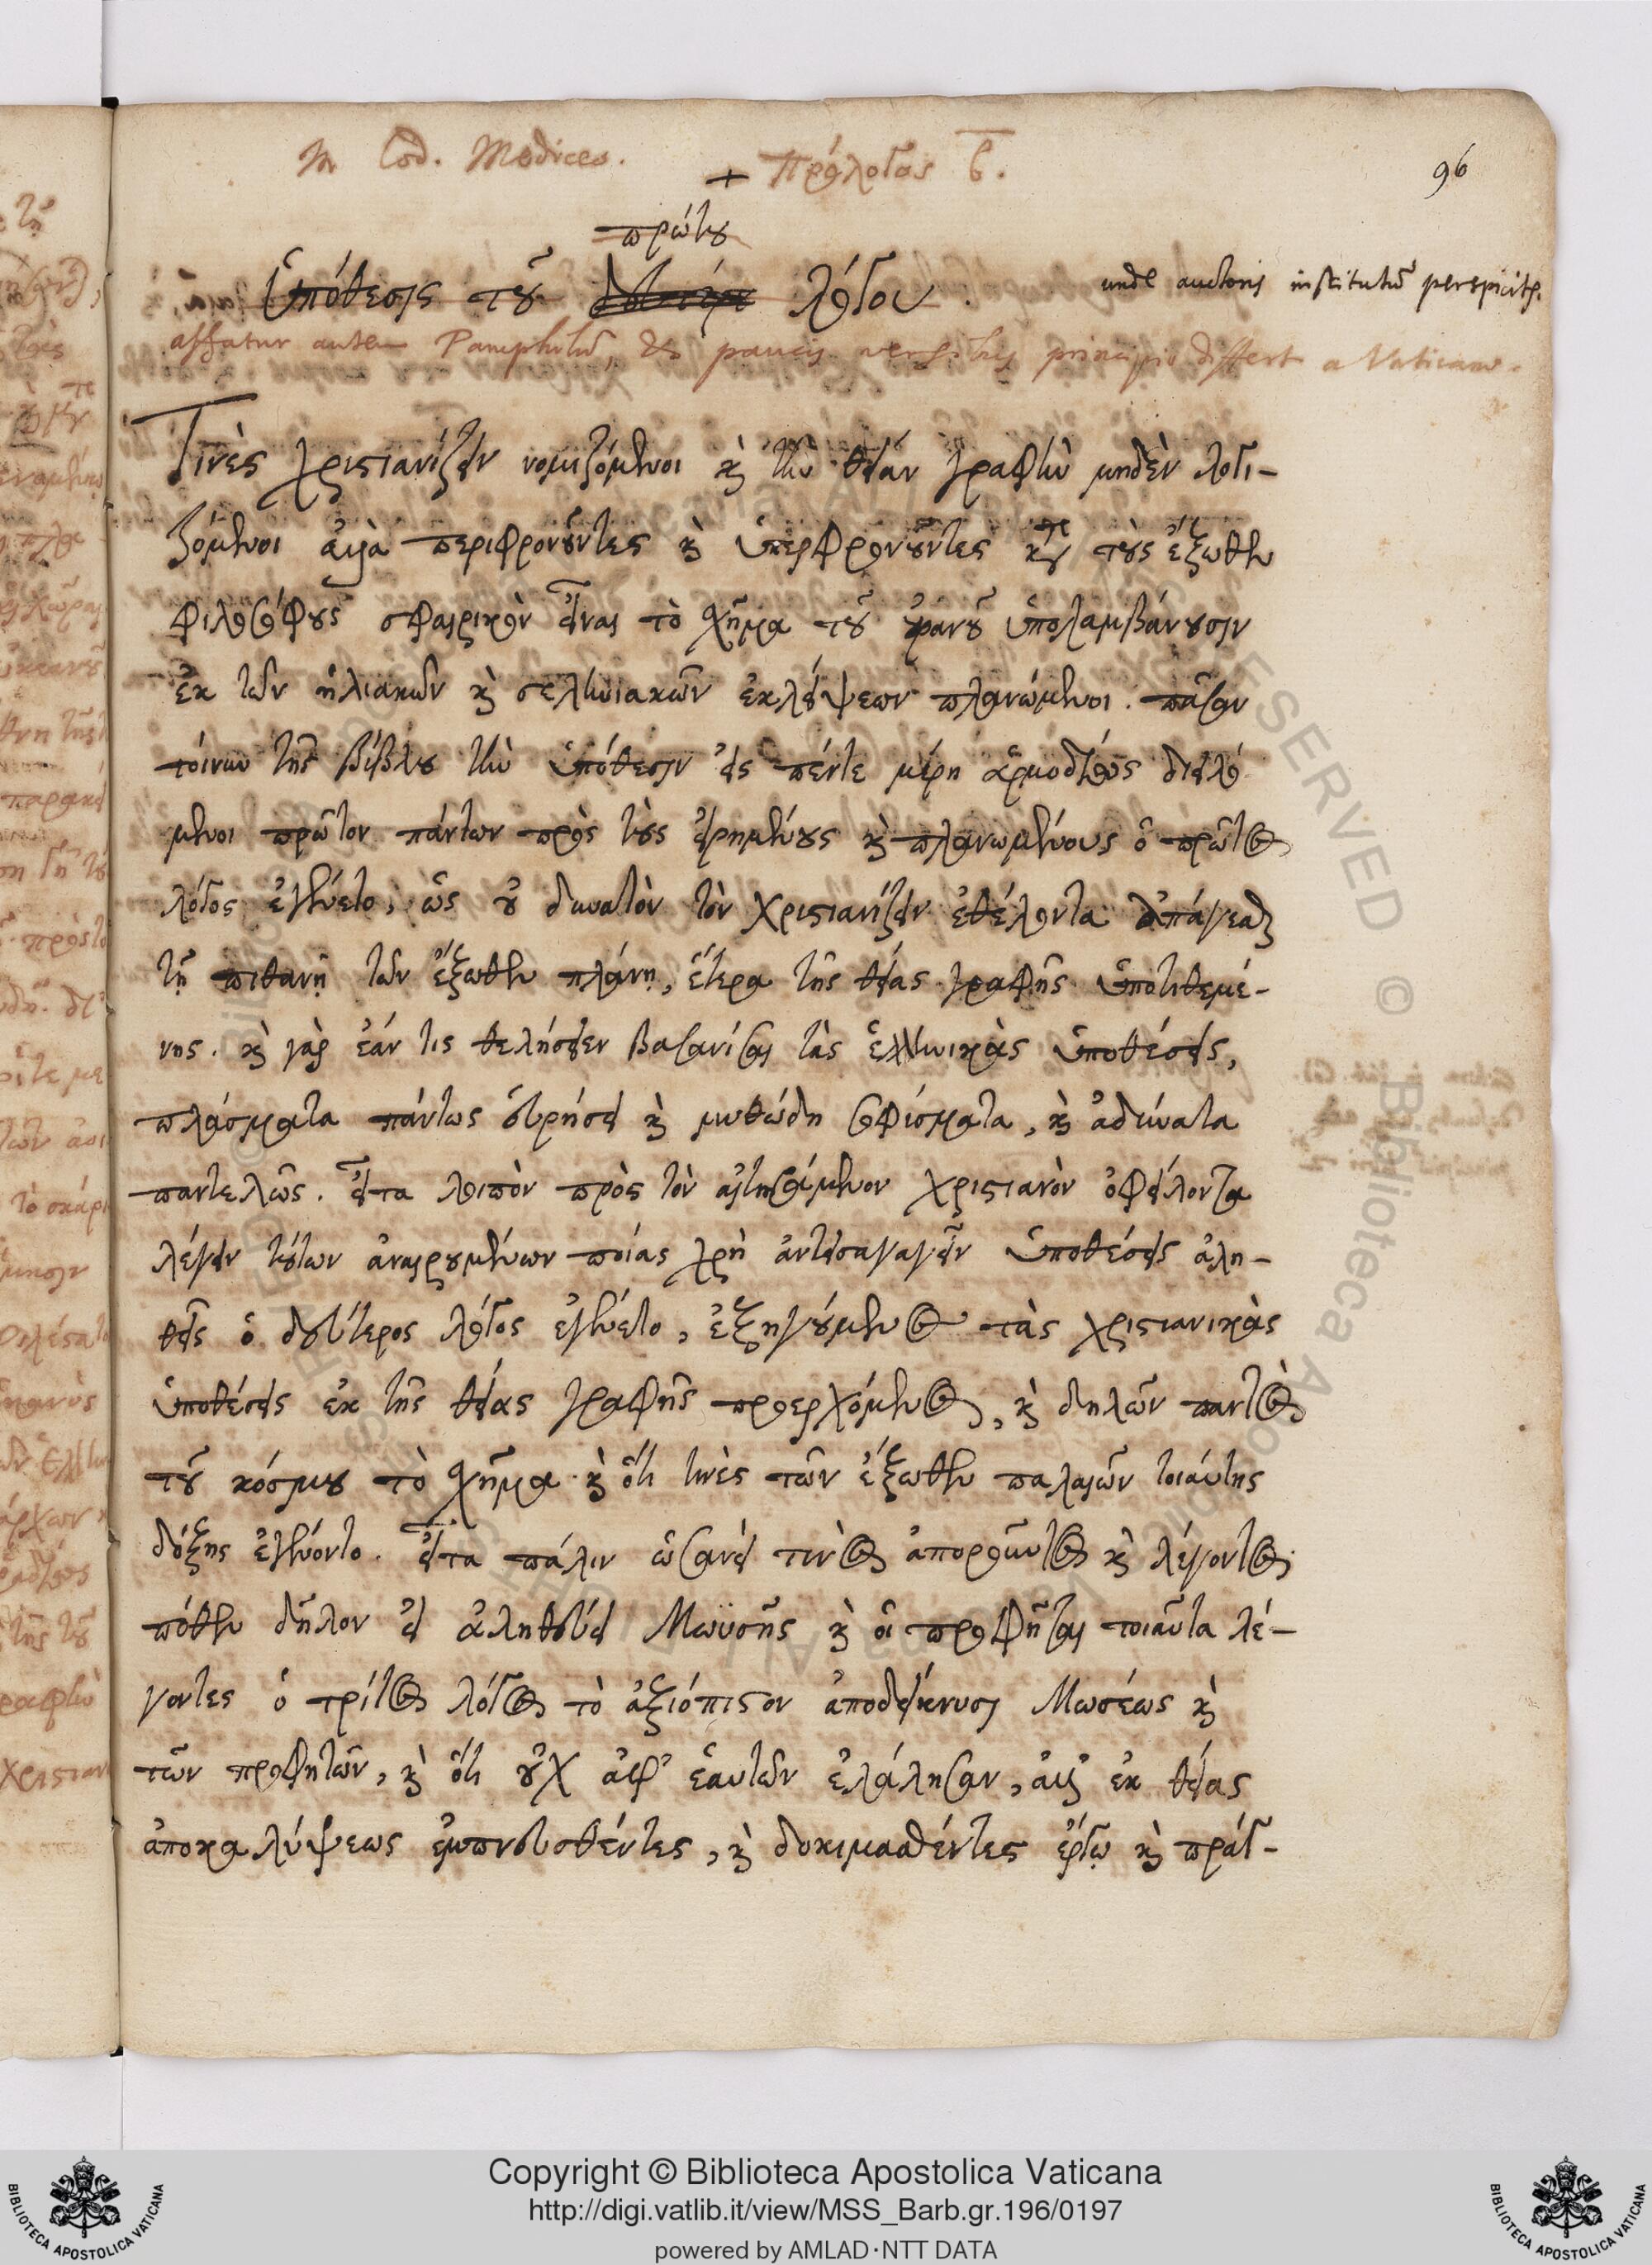 In Cod. Mediceo.
+ Πρόλογος β.
96
πρώτου
Ὑπόθεσις τοῦ λόγου.
unde auctoris institutũ perspicitr.
affatur autem Pamphilũ, & paucis versibus principio differt a Vaticano.
Τινὲς χριστιανίζειν νομιζόμενοι καὶ τὴν θείαν γραφὴν μηδὲν λογι-
ζόμενοι ἀλλὰ περιφρονοῦντες καὶ ὑπερφρονοῦντες κατὰ τοὺς ἔξωθεν
φιλοσόφους σφαιρικὸν εἶναι τὸ σχῆμα τοῦ οὐρανοῦ ὑπολαμβάνουσιν
ἐκ τῶν ἡλιακῶν καὶ σεληνιακῶν ἐκλείψεων πλανώμενοι. πᾶσαν
τοίνυν τῆς βίβλου τὴν ὑπόθεσιν εἰς πέντε μέρη ἁρμοδίως διελό
μενοι πρῶτον πάντων πρὸς τοὺς εἰρημένους καὶ πλανωμένους ὁ πρῶτος
λόγος ἐγένετο, ὡς οὐ δυνατὸν τὸν χριστιανίζειν ἐθέλοντα ἀπάγεσθαι
τῇ πιθανῇ τῶν ἔξωθεν πλάνῃ, ἕτερα τῆς θείας γραφῆς ὑποτιθεμέ-
νης. καὶ γὰρ ἐάν τις θελήσειεν βασανίσαι τὰς ἑλληνικὰς ὑποθέσεις,
πλάσματα πάντως εὑρήσει καὶ μυθώδη σοφίσματα, καὶ ἀδύνατα
παντελῶς. εἶτα λοιπὸν πρὸς τὸν αἰτησάμενον χριστιανὸν ὀφείλοντα
λέγειν τούτων ἀναιρουμένων ποίας χρὴ ἀντεισαγαγεῖν ὑποθέσεις ἀλη-
θεῖς ὁ δεύτερος λόγος ἐγένετο, ἐξηγούμενος τὰς χριστιανικὰς
ὑποθέσεις ἐκ τῆς θείας γραφῆς προερχόμενος, καὶ δηλῶν παντὸς
τοῦ κόσμου τὸ σχῆμα καὶ ὅτι τινὲς τῶν ἔξωθεν παλαιῶν τοιαύτης
δόξης ἐγένοντο. εἶτα πάλιν ὡσανεί τινος ἀποροῦντος καὶ λέγοντος
πόθεν δῆλον εἰ ἀληθεύει Μωϋσῆς καὶ οἱ προφῆται τοιαῦτα λέ-
γοντες ὁ τρίτος λόγος τὸ ἀξιόπιστον ἀποδείκνυσι Μωσέως καὶ
τῶν προφητῶν, καὶ ὅτι οὐχ ἀφ' ἑαυτῶν ἐλάλησαν, ἀλλ' ἐκ θείας
ἀποκαλύψεως ἐμπνευσθέντες, καὶ δοκιμασθέντες ἔργῳ καὶ πράγ-
Copyright © Biblioteca Apostolica Vaticana
http://digi.vatlib.it/view/MSS_Barb.gr.196/0197
powered by AMLAD·NTT DATA